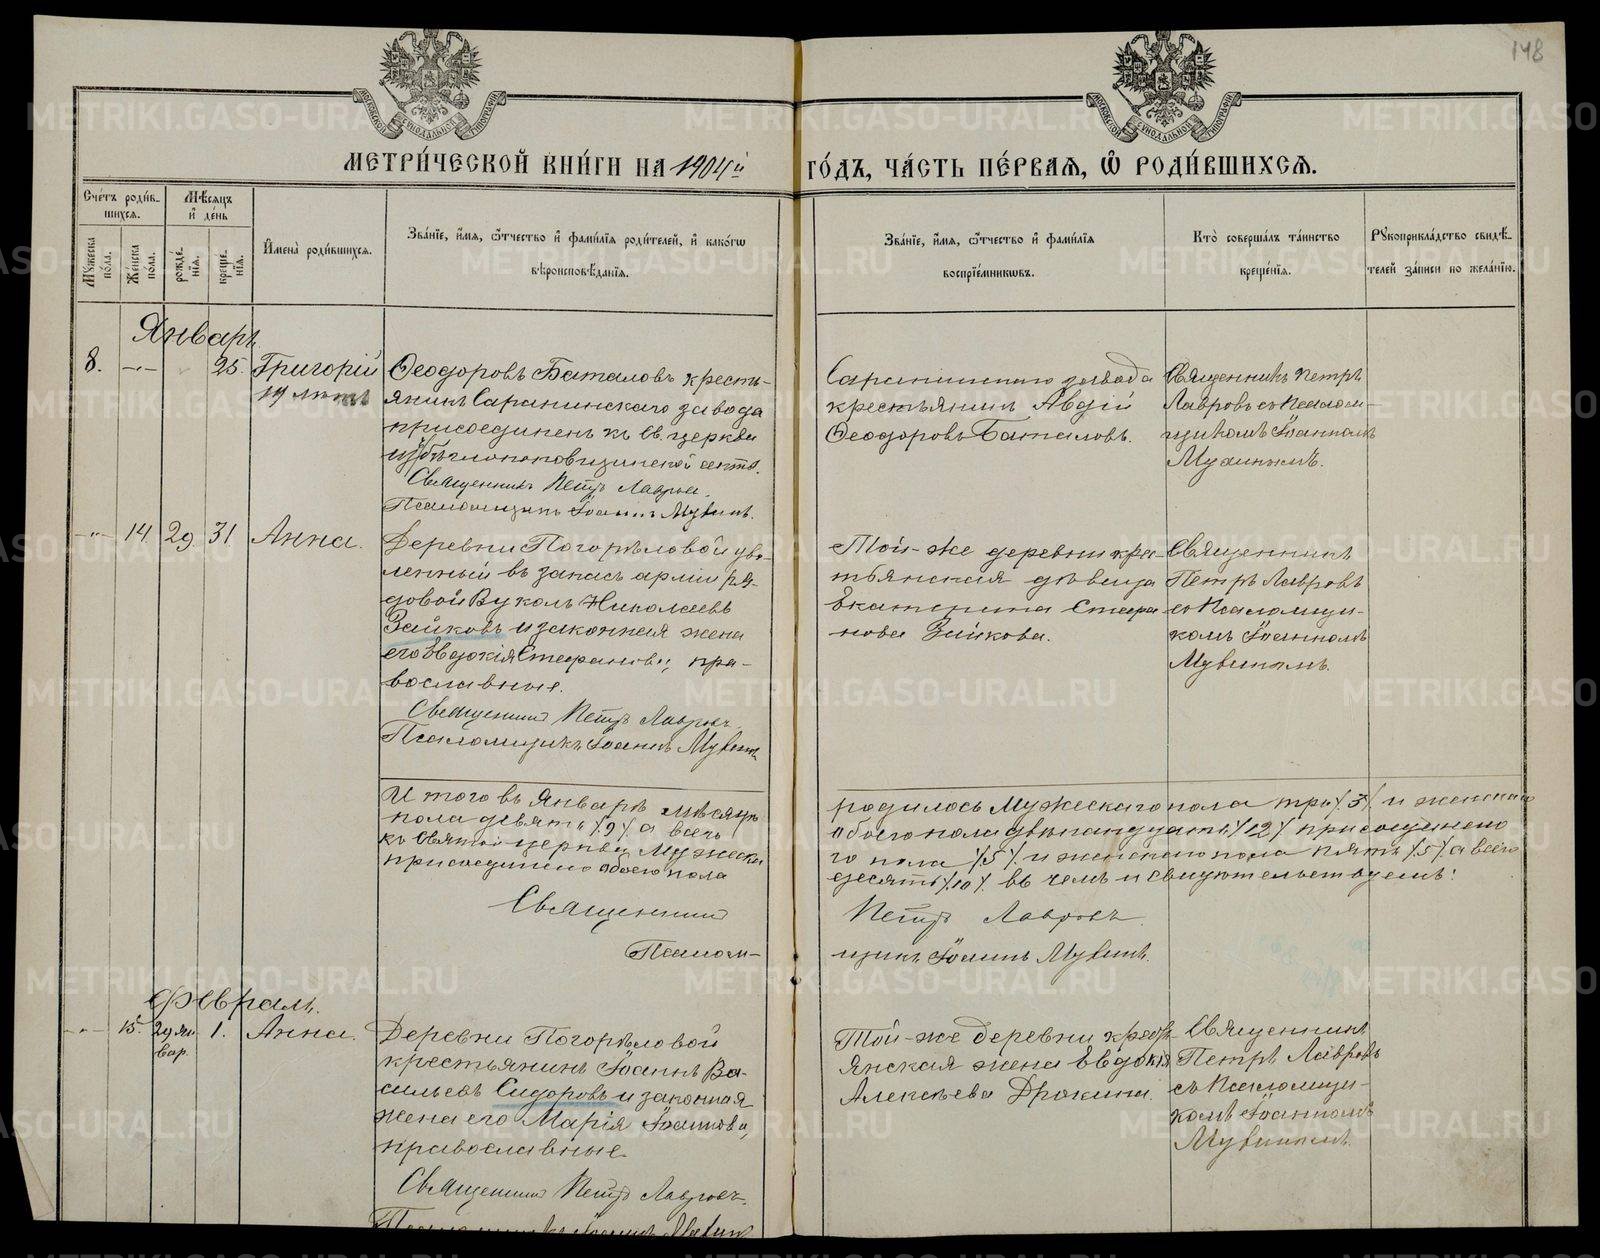 148
МОСКОВСКОЙ СѴНОДАЛЬНОЙ ТИПОГРАФІИ
МОСКОВСКОЙ СѴНОДАЛЬНОЙ ТИПОГРАФІИ
МЕТРИ́ЧЕСКОЙ КНИ́ГИ НА 1904й ГО́ДЪ, ЧА́СТЬ ПЕ́РВАЯ, Ѡ҆ РОДИ́ВШИХСЯ.
Сче́тъ роди́в-
шихся.
Мѣ́сяцъ
и҆ де́нь
Му́жеска
по́ла.
Же́нска
по́ла.
рожде́-
нїя.
креще́-
нїя.
И҆мена̀ роди́вшихся.
Зва́нїе, и҆́мя, ѻ҆́тчество и҆ фами́лїя роди́телей, и҆ како́гѡ
вѣроисповѣ́данїя.
Зва́нїе, и҆́мя, ѻ҆́тчество и҆ фами́лїя
воспрїе́мниковъ.
Кто̀ соверша́лъ та́инство
креще́нїя.
Рꙋкоприкла́дство свидѣ́-
телей за́писи по жела́нїю.
Январь
8.
-"-
25.
Григорій
19 лѣтъ
Ѳеодоровъ Баталовъ кресть-
янинъ Саранинскаго завода
присоединенъ къ Св. церкви
изъ бѣглопоповщинской секты.
Священникъ Петръ Лавровъ.
Псаломщикъ Іоаннъ Мувинъ.
Саранинскаго завода
крестьянинъ Авдій
Ѳеодоровъ Баталовъ.
Священникъ Петръ
Лавровъ съ Псалом-
щикомъ Іоанномъ
-"-
14
29
31
Анна.
Деревни Погорѣловой уво-
ленный въ запасъ арміи ря-
довой Вуколъ Николаевъ
Зайковъ и законная жена
его Евдокія Стефанова, пра-
вославные.
Священникъ Петръ Лавровъ.
Псаломщикъ Іоаннъ Мувинъ
Той-же деревни кре-
стьянская дѣвица
Екатерина Стефа
нова Зайкова.
Священникъ
Петръ Лавровъ
съ Псаломщи-
комъ Іоанномъ
Мувинымъ.
Итого въ Январѣ мѣсяцѣ родилось Мужескаго пола три /3/ и женскаго
пола девять /9/ а всего обоего пола двѣнадцать /12/ присоединено
къ Святой церкви Мужеска го пола /5/ и женскаго пола пять /5/ а всего
присоединено обоего пола десять /10/ въ чемъ и свидѣтельствуемъ:
Священникъ Петръ Лавровъ
Псалом- щикъ Іоаннъ Мувинъ.
Февраль.
-"-
15.
29 Ян
вар.
1.
Анна.
Деревни Погорѣловой
крестьянинъ Іоаннъ Ва-
сильевъ Сидоровъ и законная
жена его Марія Іоаннова,
православные
Священникъ Петръ Лавровъ
Псаломщикъ Іоаннъ Мувинъ
Той-же деревни крестъ
янская жена Евдокія
Алексѣева Дрокина.
Священникъ
Петръ Лавровъ
съ Псаломщи-
комъ Іоанномъ
Мувинымъ.
METRIKI.GASO-URAL.RU